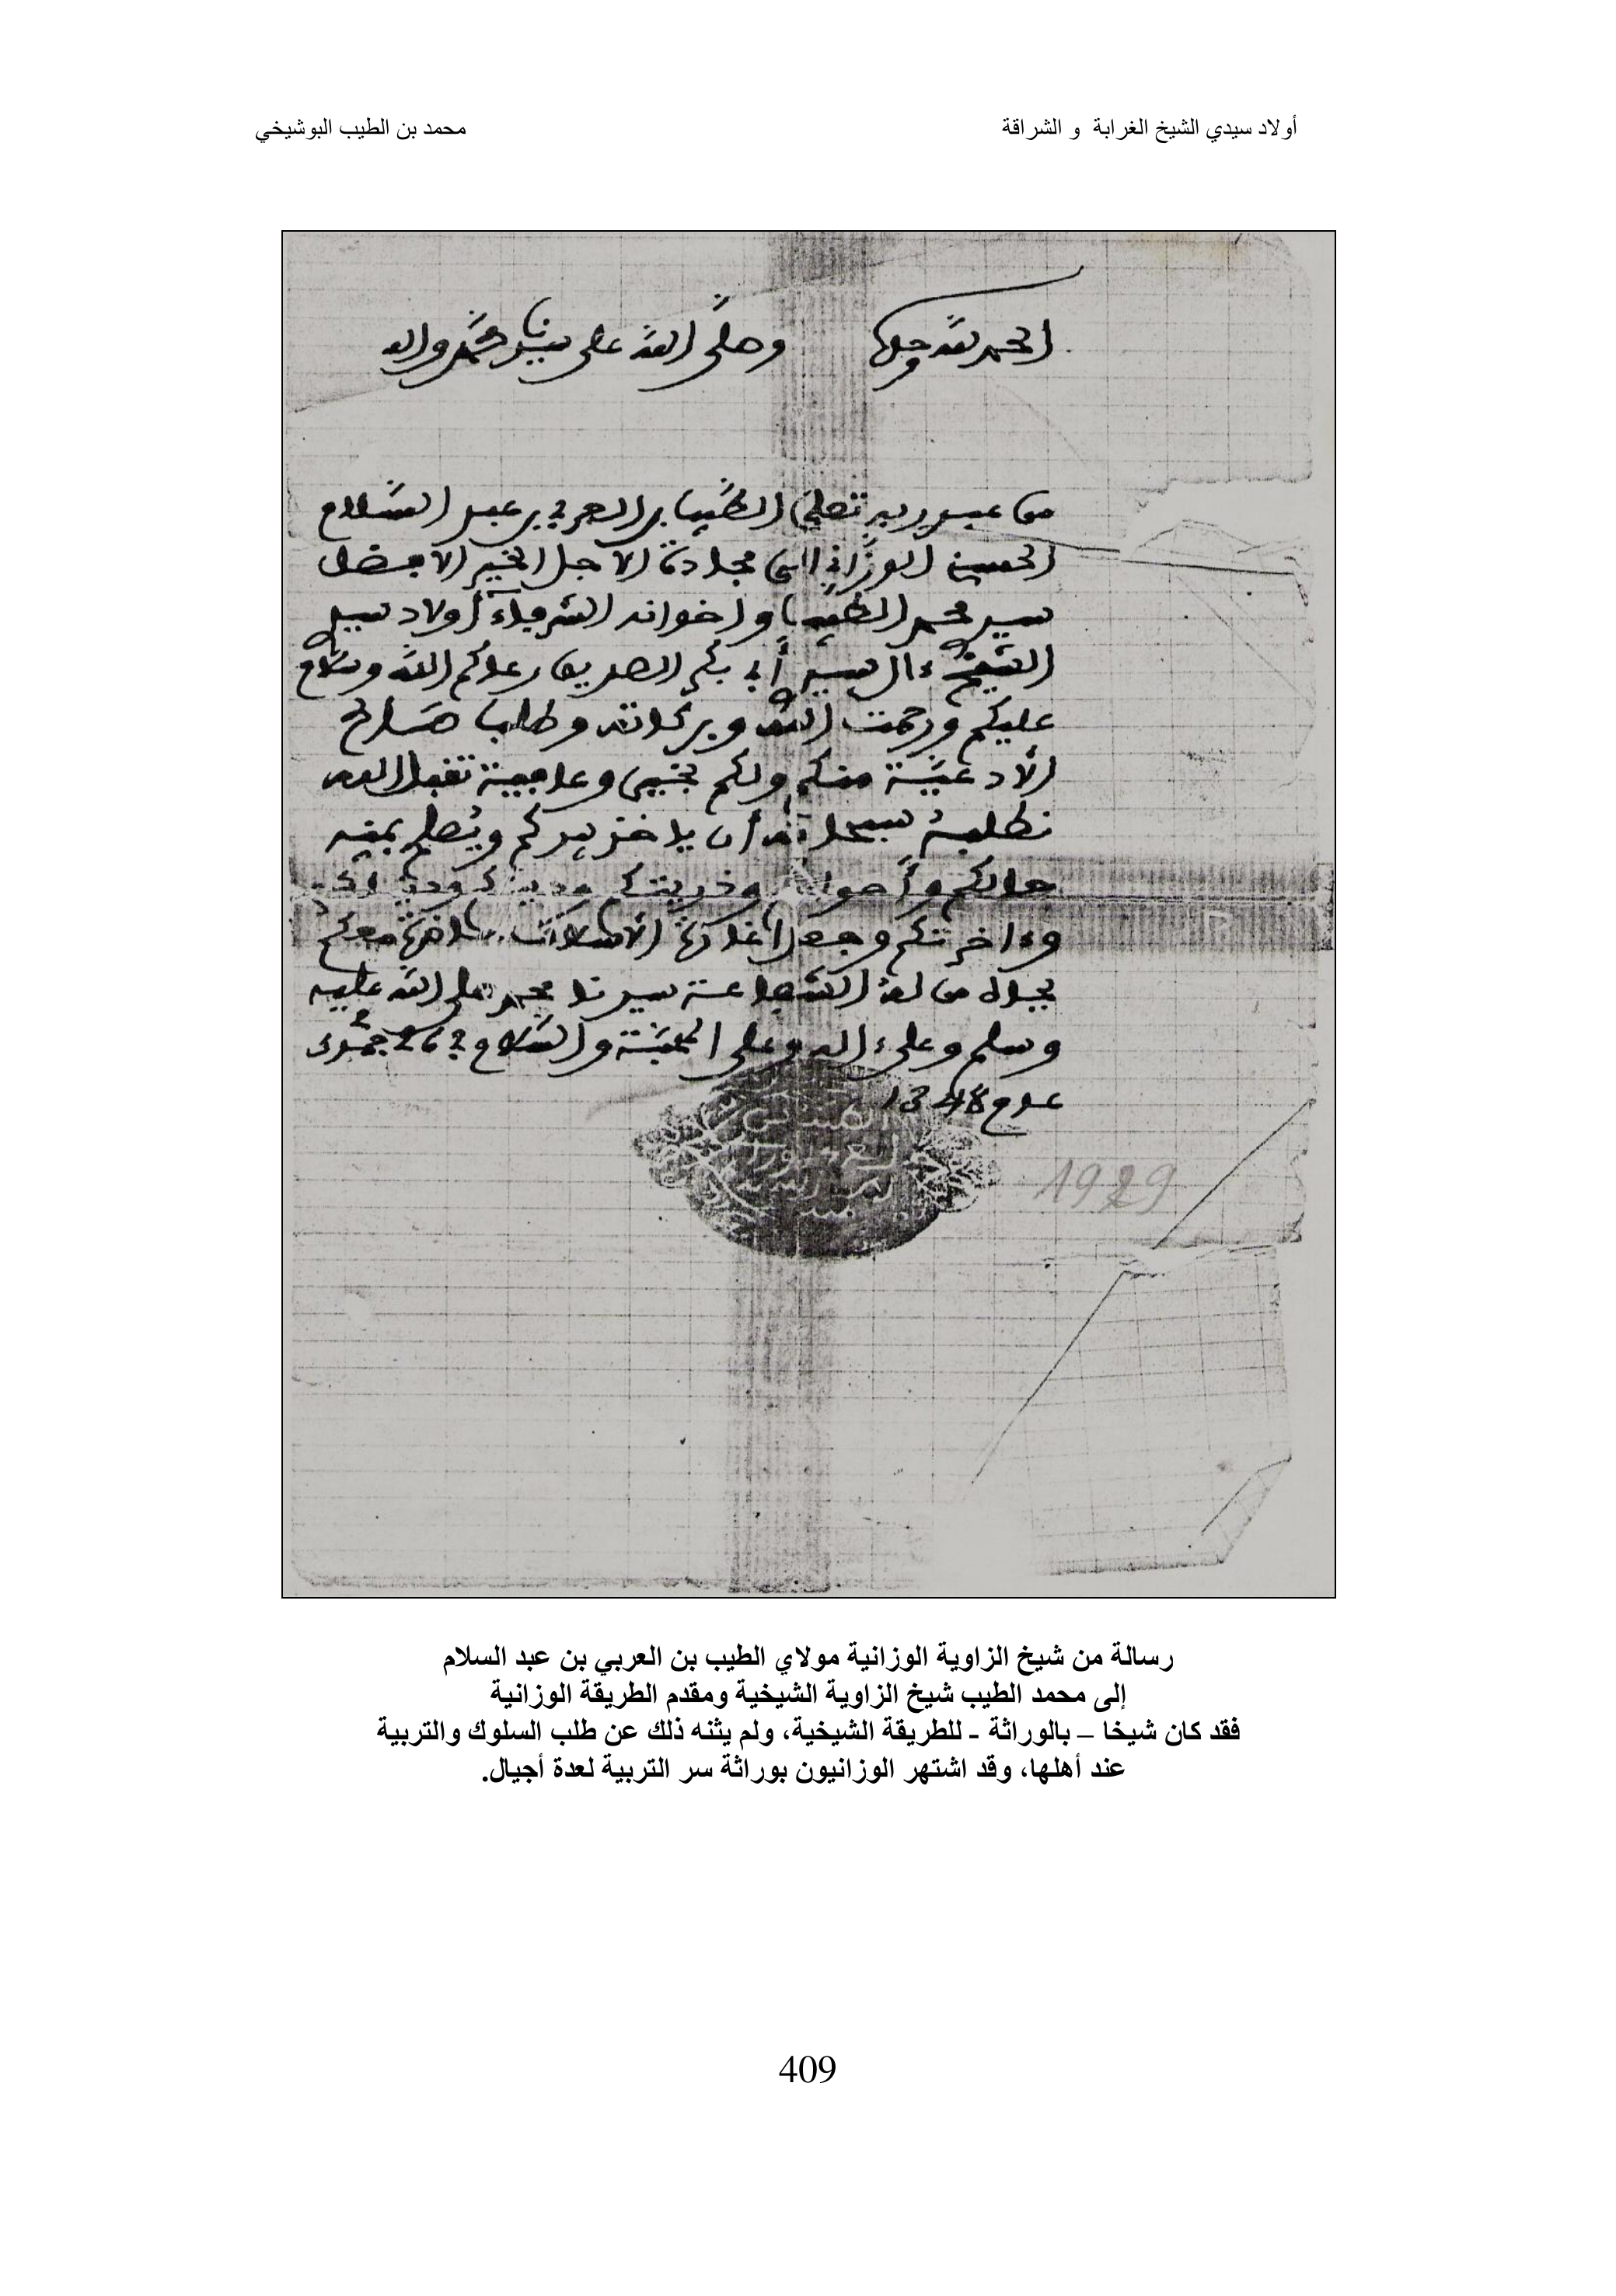 أولاد سيدي الشيخ الغرابة و الشراقة
محمد بن الطيب البوشيخي
الحمد لله وحده
وصلى الله على سيدنا محمد وءاله
من عبد ربه تعلى الطيب بن العربي بن عبد السلام
الحسني الوزاني الى الاجل الخير الافضل
سيد محمد الطيب واخوانه الشرفاء أولاد سيد
الشيخ ءال سيد أبي بكر الصديق رعاكم الله وسلام
عليكم ورحمت الله وبركاته وطلب صالح
الأدعية منكم ولكم بخير وعافية تقبل الله
نطلبه سبحانه أن ياخذ بيدكم ويصلح بمنه
حالكم وذريتكم
وءاخرتكم وجعل معكم
بجاه من له الشفاعة سيدنا محمد صلى الله عليه
وسلم وعلى ءاله وعلى المحبة والسلام في 26
عام 1348
1929
رسالة من شيخ الزاوية الوزانية مولاي الطيب بن العربي بن عبد السلام
إلى محمد الطيب شيخ الزاوية الشيخية ومقدم الطريقة الوزانية
فقد كان شيخا – بالوراثة - للطريقة الشيخية، ولم يثنه ذلك عن طلب السلوك والتربية
عند أهلها، وقد اشتهر الوزانيون بوراثة سر التربية لعدة أجيال.
409